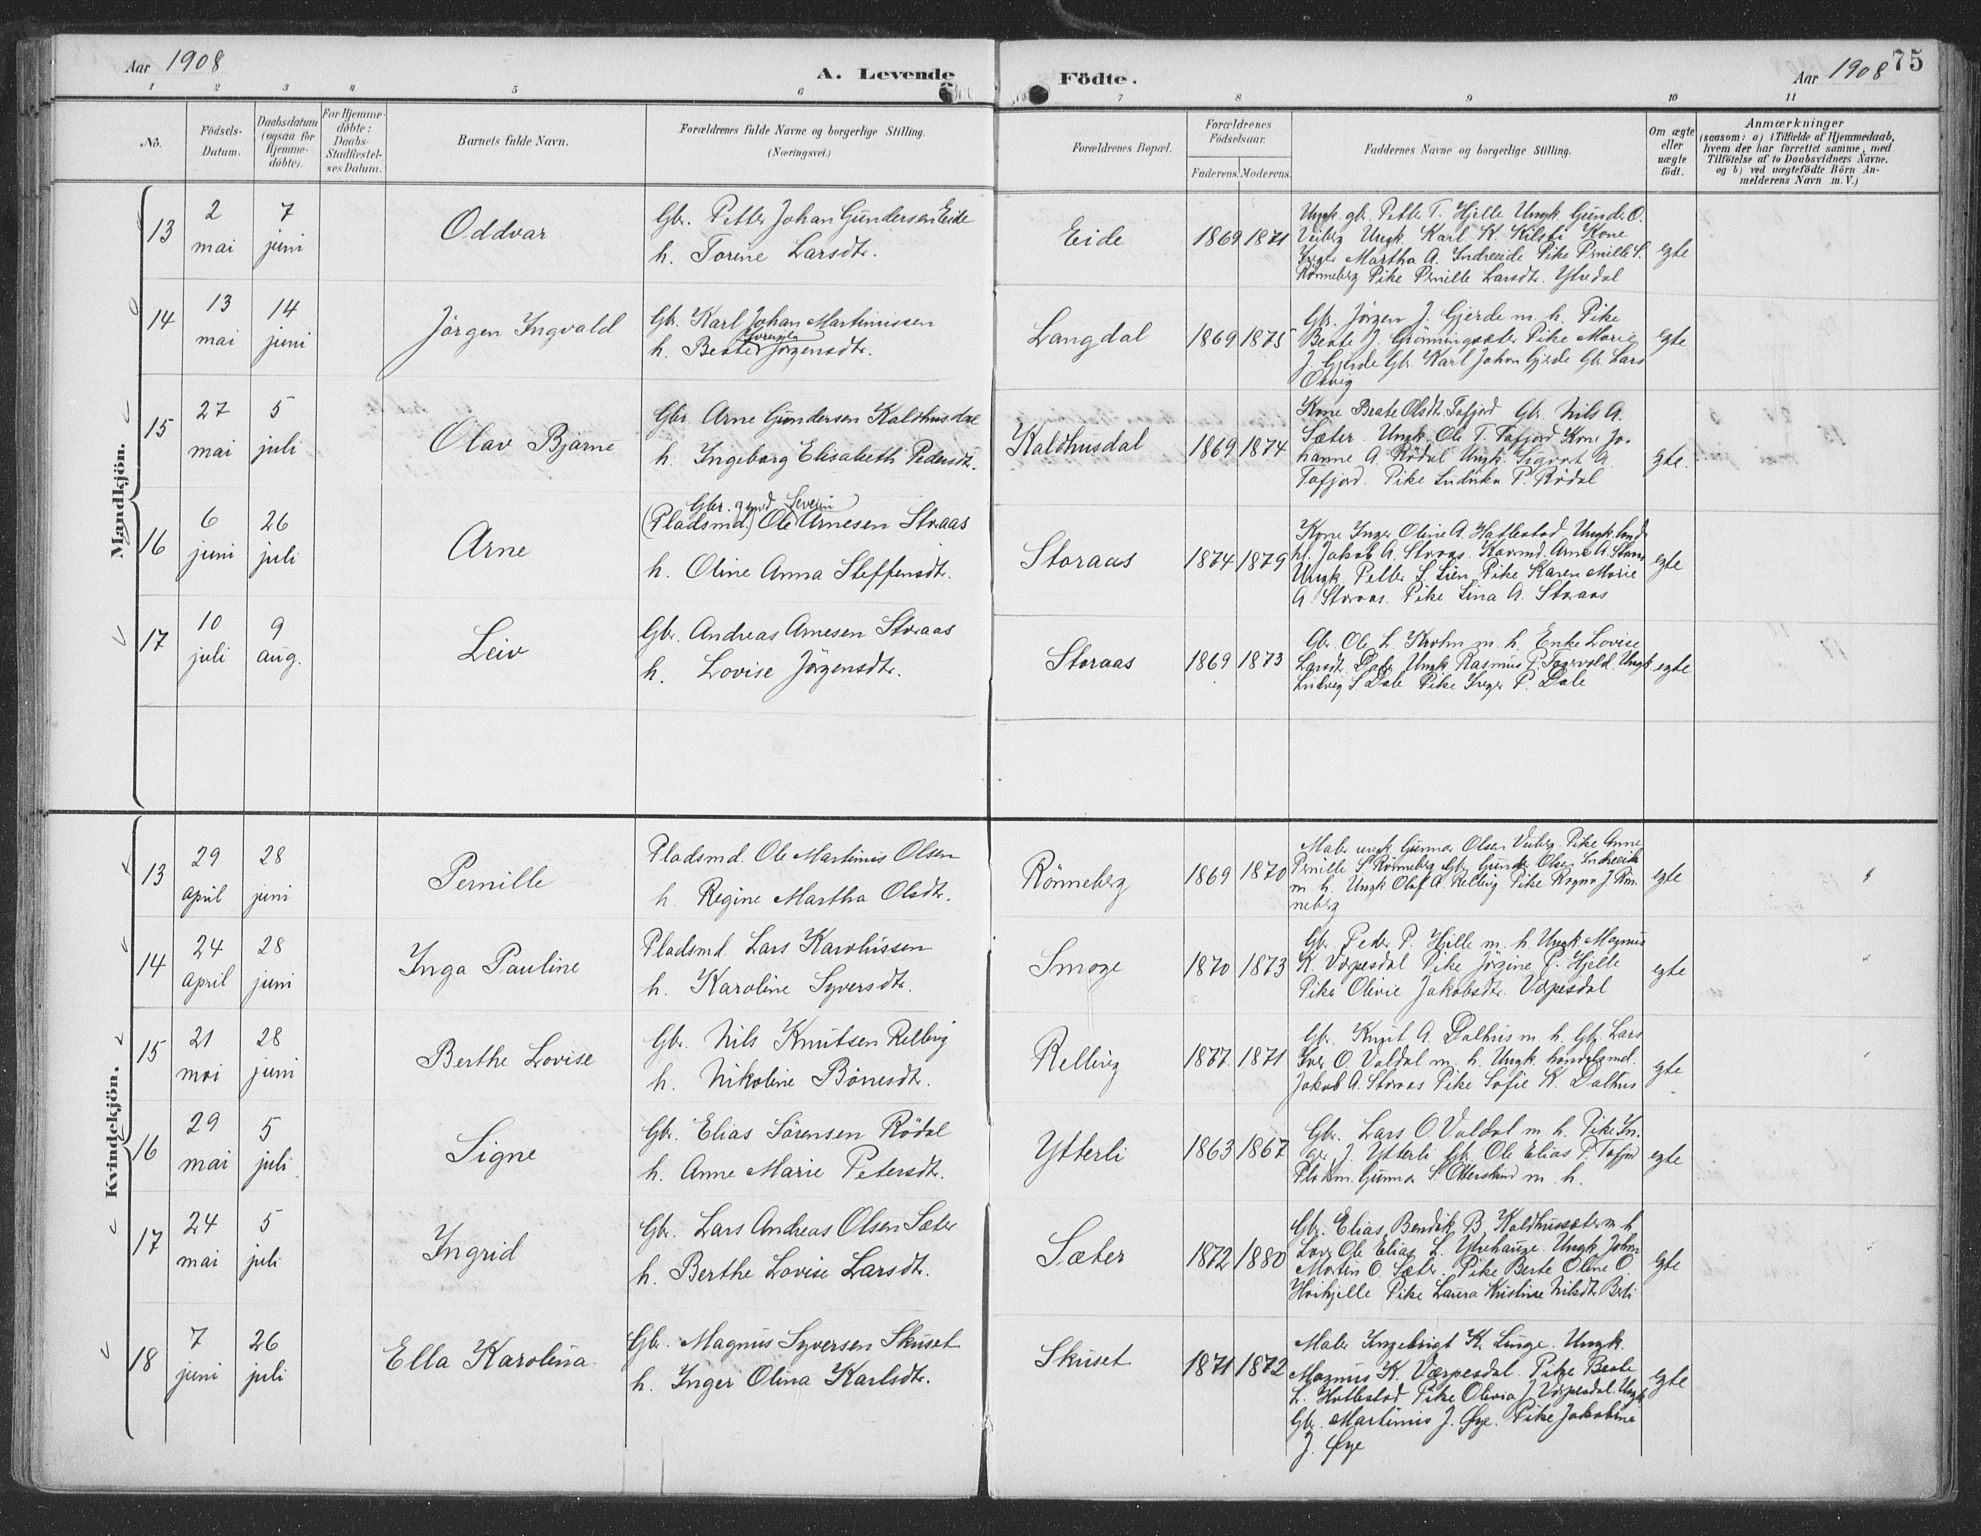 Aar 1908
A. Levende
Födte.
Aar 1908
75
1 2 3 4 5 6 7 8 9 10 11
No.
Födsels-
Datum.
Daabsdatum
(ogsaa for
Hjemme-
döbte).
For Hjemme-
döbte:
Daabs-
Stadfæstel-
ses Datum.
Barnets fulde Navn.
Forældrenes fulde Navne og borgerlige Stilling.
(Næringsvei.)
Forældrenes Bopæl.
Forældrenes
Födselsaar.
Faderens. Moderens.
Faddernes Navne og borgerlige Stilling.
Om ægte
eller
uægte
født.
Anmærkninger
(saasom: a) i Tilfælde af Hjemmedaab,
hvem der har forrettet samme, med
Tilföielse af to Daabsvidners Navne,
og b) ved uægtefödte Börn An-
melderens Navn m. V.)
Mandkjön.
13
2
mai
7
juni
Oddvar
Gbr. Petter Johan Gundersen Eide
h. Torine Larsdtr.
Eide
1869 1871
Ungk. gbr. Petter T. Hjelle Ungk Gunder O.
Veiberg Ungk Karl K. Kilsti Kone
Martha A. Indreeide Pike Pernille S.
Rönneberg Pike Pernille Larsdtr. Ytredal
egte
14
13
mai
14
juni
Jörgen Ingvald
Gbr. Karl Johan Martinussen
h. Beate Jörgensdtr.
Langdal
1869 1875
Gbr. Jörgen J. Gjerde m. h. Pike
Beate J. Grönningsæter Pike Marie
J. Gjerde Gbr. Karl Johan Gjerde Gbr. Lars
egte
15
27
mai
5
juli
Olav Bjarne
Gbr. Arne Gundersen Kaldhusdal
h. Ingeborg Elisabeth Pedersdtr.
Kaldhusdal
1869 1874
Kone Beate Olsdtr. Tafjord Gbr. Nils A.
Sæter. Ungk. Ole T. Tafjord Kone Jo-
hanne A. Rödal Ungk. Sigvart A.
Tafjord. Pike Ludvika P. Rödal
egte.
16
6
juni
26
juli
Arne
Gbr. Severin
(Pladsmd.) Ole Arnesen Storaas
h. Oline Anna Steffensdtr.
Storaas
1874 1879
Kone Inger Oline A. Hatlestad Ungk. land-
h. Jakob A. Storaas. Kaarmd. Arne A. Storaas
Ungk. Petter S. Lien Pike Karen Marie
A. Storaas. Pike Lina A. Storaas
egte
17
10
juli
9
aug.
Leiv
Gbr. Andreas Arnesen Storaas
h. Lovise Jörgensdtr.
Storaas
1869 1873
Gbr. Ole L. Krohn m. h. Enke Lovise
Larsdtr. Dale Ungk Rasmus P. Ungk
Ludvig S. Dale Pike Inger P. Dale
egte
Kvindekjön.
13
29
april
28
juni
Pernille
Pladsmd. Ole Martinus Olsen
h. Regine Martha Olsdtr.
Rönneberg
1869 1870
Maler ungk Gunnar Olsen Veiberg Pike Anne
Pernille S. Rönneberg Gbr Gunder Olsen Indreeide
m h. Ungk Olaf A. Relling Pike Ragna J. Rön-
neberg
egte
14
24
april
28
juni
Inga Pauline
Pladsmd. Lars Karolussen
h. Karoline Syversdtr.
Smoge
1870 1873
Gbr. Peder P. Hjelle m. h. Ungk Magnus
K. Værpesdal Pike Jörgine P. Hjelle
Pike Olivie Jakobsdtr. Værpesdal
egte
15
21
mai
28
juni
Berthe Lovise
Gbr. Nils Knutsen Relling
h. Nikoline Bönesdtr.
Relling
1877. 1871
Gbr. Knut A. Dalhus m. h. Gbr. Lars
Iver O. Valdal m. h. Ungk. handelsmd.
Jakob A. Storaas Pike Sofie K. Dalhus
egte
16
29
mai
5
juli
Signe
Gbr. Elias Sörensen Rödal
h. Anne Marie Petersdtr.
Ytterli
1863 1867
Gbr. Lars O. Valdal m. h. Pike In-
ger J. Ytterli Gbr. Ole Elias P. Tafjord
Gunnar S. m. h.
egte
17
24
mai
5
juli
Ingrid
Gbr. Lars Andreas Olsen Sæter
h. Berthe Lovise Larsdtr.
Sæter
1872 1880
Gbr. Elias Bendik B. Kaldhussæter m h
Ole Elias L. Ytrehauge. Ungk Johan
Martin O. Sæter. Pike Berte Oline O.
Hoihjelle Pike Laura Kristine Nilsdtr Berli
egte
18
7
juni
26
juli
Ella Karolina
Gbr. Magnus Syversen Skuset
h. Inger Olina Karlsdtr.
Skuset
1871 1872
Maler Ingebrigt K. Linge. Ungk.
Magnus K. Værpesdal. Pike Beate
L. Hatlestad Pike Olivia J. Værpesdal. Ungk
Gbr. Martinus J. Øye. Pike Jakobine
J. Øye
egte